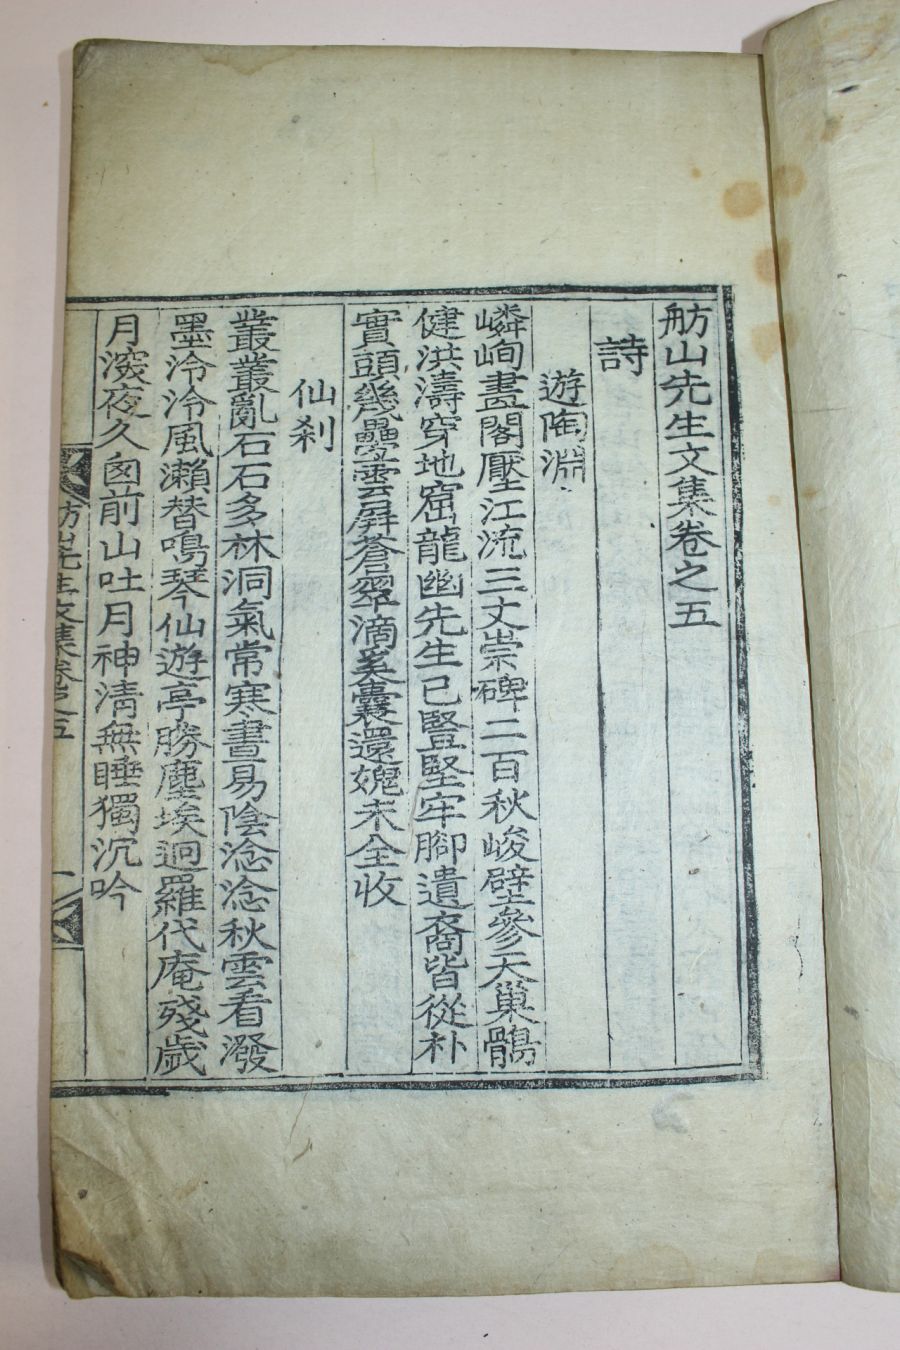 舫山先生文集卷之五
詩
遊陶淵
嶙峋畫閣壓江流三丈崇碑二百秋峻壁參天巢鶻
健洪濤穿地窟龍幽先生已豎堅牢腳遺裔皆從朴
實頭幾疊雲屏蒼翠滴奚囊還媿未全收
仙刹
叢叢亂石石多林洞氣常寒晝易陰淰淰秋雲看潑
墨泠泠風瀨替鳴琴仙遊亭勝塵埃迥羅代庵殘歲
月深夜久囱前山吐月神清無睡獨沉吟
舫山先生文集卷之五
一